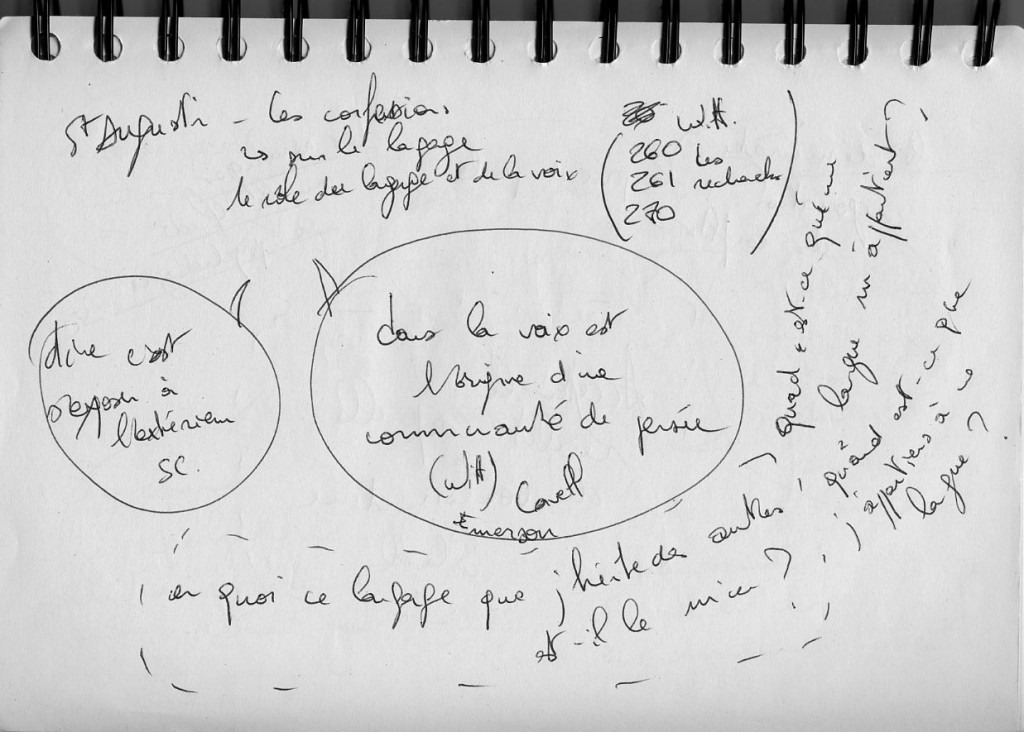 St Augustin - Les confessions
sur le lagage
le rôle du lagage et de la voix
Witt.
260 Les
261 recherches
270
dire c'est
s'exposer à
l'extérieur
SC.
dans la voix est
l'origine d'une
communauté de pensée
(Witt) Cavell
Emerson
en quoi ce lagage que j'hérite des autres,
est-il le mien ?
Quand est-ce qu'une
langue m'appartient ?,
quand est-ce que
j'appartiens à une
langue ?